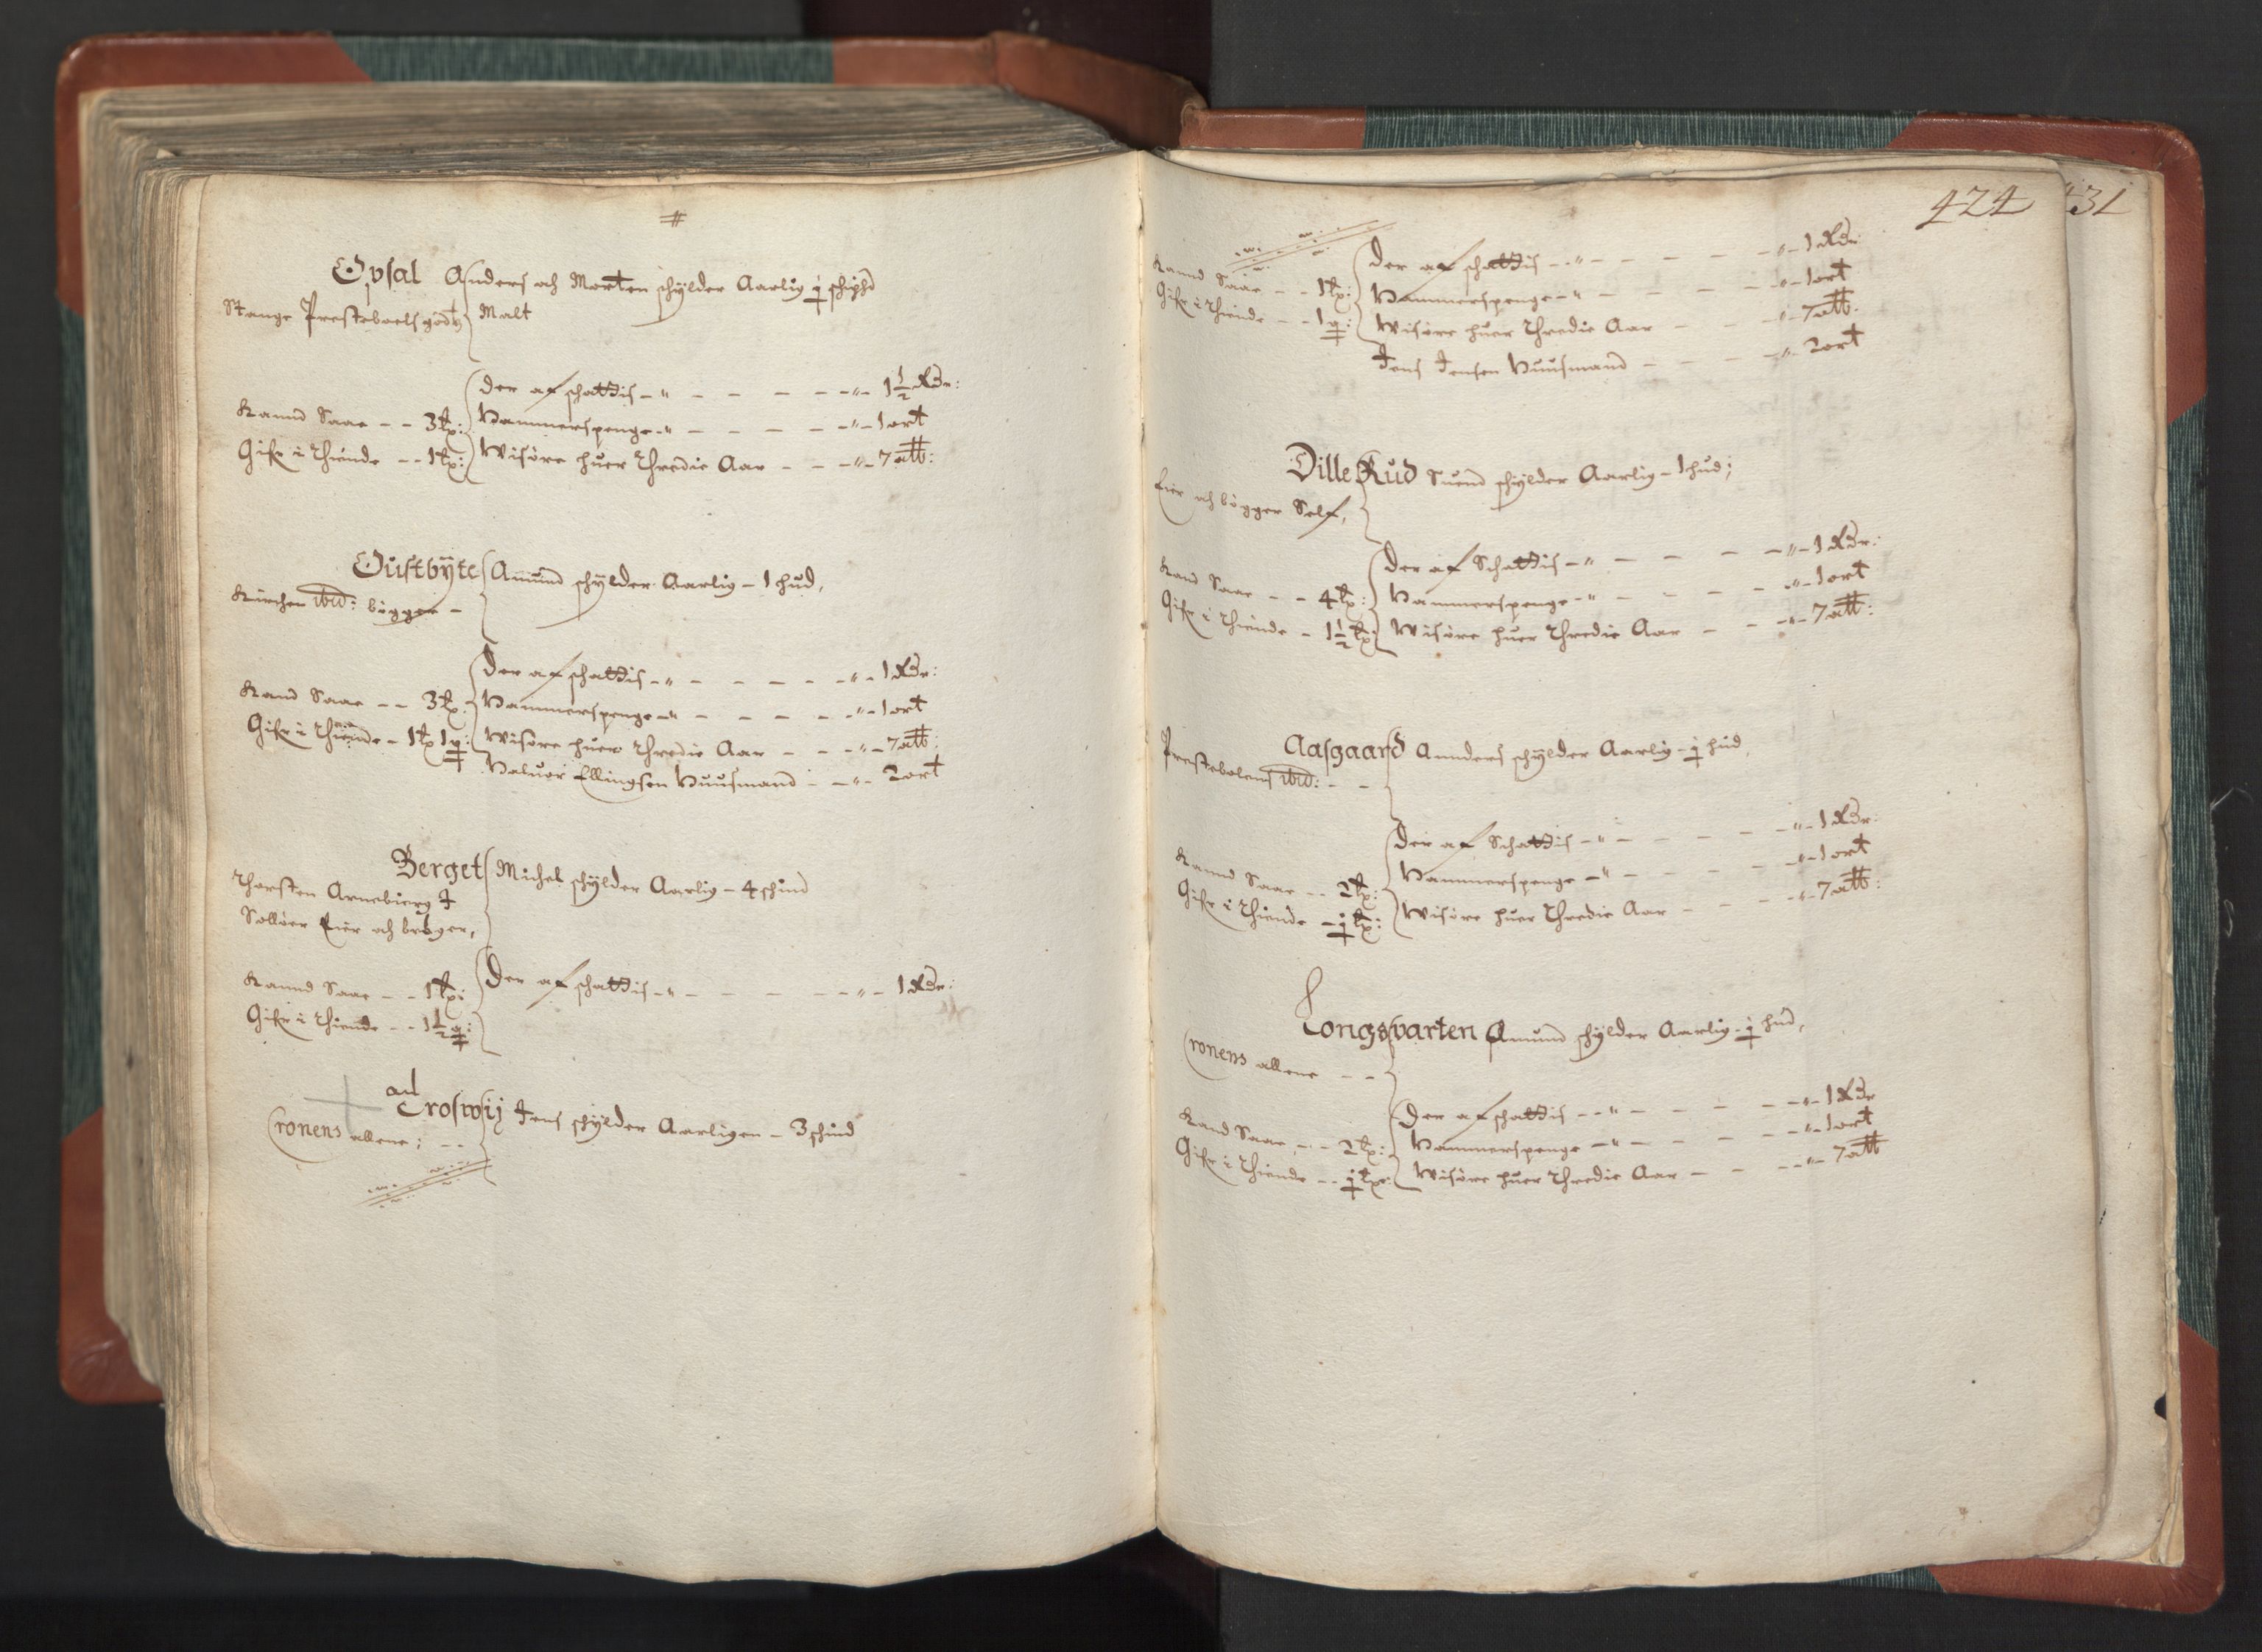 #
Opsal Anders och Morten schylder Aarlig ½ schipd
Stange Presteboels godtz Malt
Der af schattis - 1½ Rdr:
Kannd Saae - - 3 tr: Hammerspenge - 1 ort
Gifr i thiende - - 1 tr: Wisøre huer thredie Aar - - - 7 alb:
Oustbyte Amund schylder Aarlig - 1 hud,
Kirchen ibid: bøgger -
Der af schattis - 1 Rdr:
Kand Saae - - 3 tr: Hammerspenge - 1 ort
Gifr i thiende - 1 tr 1 q: Wisøre huer thredie Aar - - - 7 alb:
Haluor Ellingsen Huusmand - - 2 ort
Berget Michel schylder Aarlig - 4 schind
Thorsten Arnebierg I
Solløer Eier och bøger,
Kannd Saae - - 1 tr: Der af schattis - 1 Rdr:
Gifr i thiende - - 1½ q:
ad
Croswij Jens schylder Aarligen - 3 schind
Cronens allene; - -
424 431
Der af schattis - 1 Rdr:
Kannd Saae - - 1 tr: Hammerspenge - 1 ort
Gifr i thiende - - 1 q: Wisøre huer thredie Aar - - 7 alb:
Jens Jensen Huusmand - - 2 ort
Dille Rud Suend schylder Aarlig - 1 hud;
Eier och bøgger Self,
Der af Schattis - 1 Rdr:
Kand Saae - - 4 tr: Hammerspenge - 1 ort
Gifr i thiende - 1½ tr: Wisøre huer thredie Aar - - 7 alb:
Aasgaard Annders schylder Aarlig - ½ hud,
Prestebolens ibid: - -
Der af Schattis - 1 Rdr:
Kannd Saae - - 2 tr: Hammerspenge - 1 ort
Gifr i thiende - ½ tr: Wisøre huer thredie Aar - - 7 alb:
Longsparten Amund schylder Aarlig - ½ hud,
Cronens allene - -
Der af schattis - 1 Rdr
Kand Saae - - 2 tr: Hammerspenge - 1 ort
Gifr i thiende - - ½ tr: Wisøre huer thredie Aar - - 7 alb